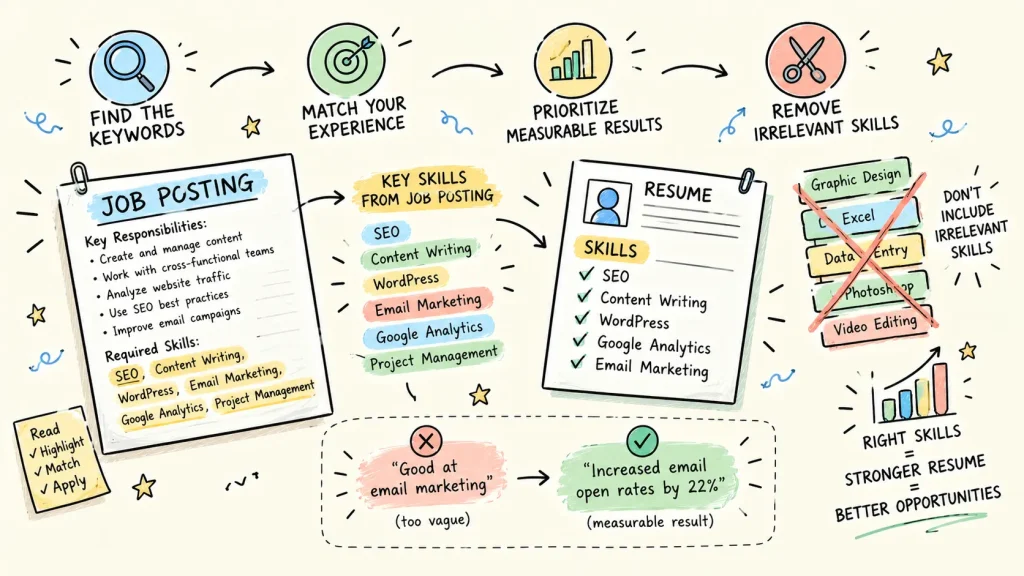 FIND THE
KEYWORDS
MATCH YOUR
EXPERIENCE
PRIORITIZE
MEASURABLE RESULTS
REMOVE
IRRELEVANT SKILLS
JOB POSTING
Key Responsibilities:
• Create and manage content
• Work with cross-functional teams
• Analyze website traffic
• Use SEO best practices
• Improve email campaigns
Required Skills:
SEO, Content Writing,
WordPress, Email Marketing,
Google Analytics, Project Management
Read
✓ Highlight
✓ Match
✓ Apply
KEY SKILLS
FROM JOB POSTING
SEO
Content Writing
WordPress
Email Marketing
Google Analytics
Project Management
RESUME
SKILLS
✓ SEO
✓ Content Writing
✓ WordPress
✓ Google Analytics
✓ Email Marketing
Graphic Design
Excel
Data Entry
Photoshop
Video Editing
DON'T
INCLUDE
IRRELEVANT
SKILLS
"Good at
email marketing"
(too vague)
"Increased email
open rates by 22%"
(measurable result)
RIGHT SKILLS
=
STRONGER RESUME
=
BETTER OPPORTUNITIES